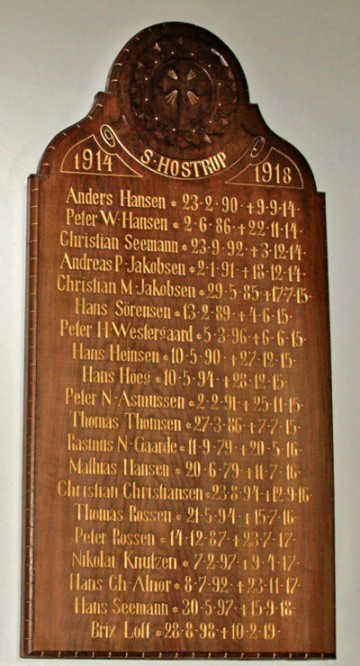 1914 S·HOSTRUP 1918
Anders Hansen * 23-2-90-+9-9-14-
Peter W·Hansen * 2-6-86-+22-11-14-
Christian Seemann * 23-9-92-+3-12-14-
Andreas P·Jakobsen * 2-1-91-+18-12-14-
Christian M·Jakobsen * 29-5-85-+17-7-15-
Hans Sörensen * 13-2-89-+4-6-15-
Peter H·Westergaard * 5-3-96-+6-6-15-
Hans Heinsen * 10-5-90-+27-12-15-
Hans Höeg * 10-5-94-+28-12-15-
Peter N·Asmussen * 2-2-91-+25-11-15-
Thomas Thomsen * 27-3-86-+7-7-15-
Rasmus N·Gaarde * 11-9-79-+20-5-16-
Mathias Hansen * 20-6-79-+11-7-16-
Christian Christiansen * 23-8-94-+12-9-16-
Thomas Rossen * 21-5-94-+15-7-16-
Peter Rossen * 14-12-87-+23-7-17-
Nikolai Knutzen * 7-2-97-+9-4-17-
Hans Ch·Alnor * 8-7-92-+23-11-17-
Hans Seemann * 30-5-97-+15-9-18-
Brix Loff * 28-8-98-+10-2-19-